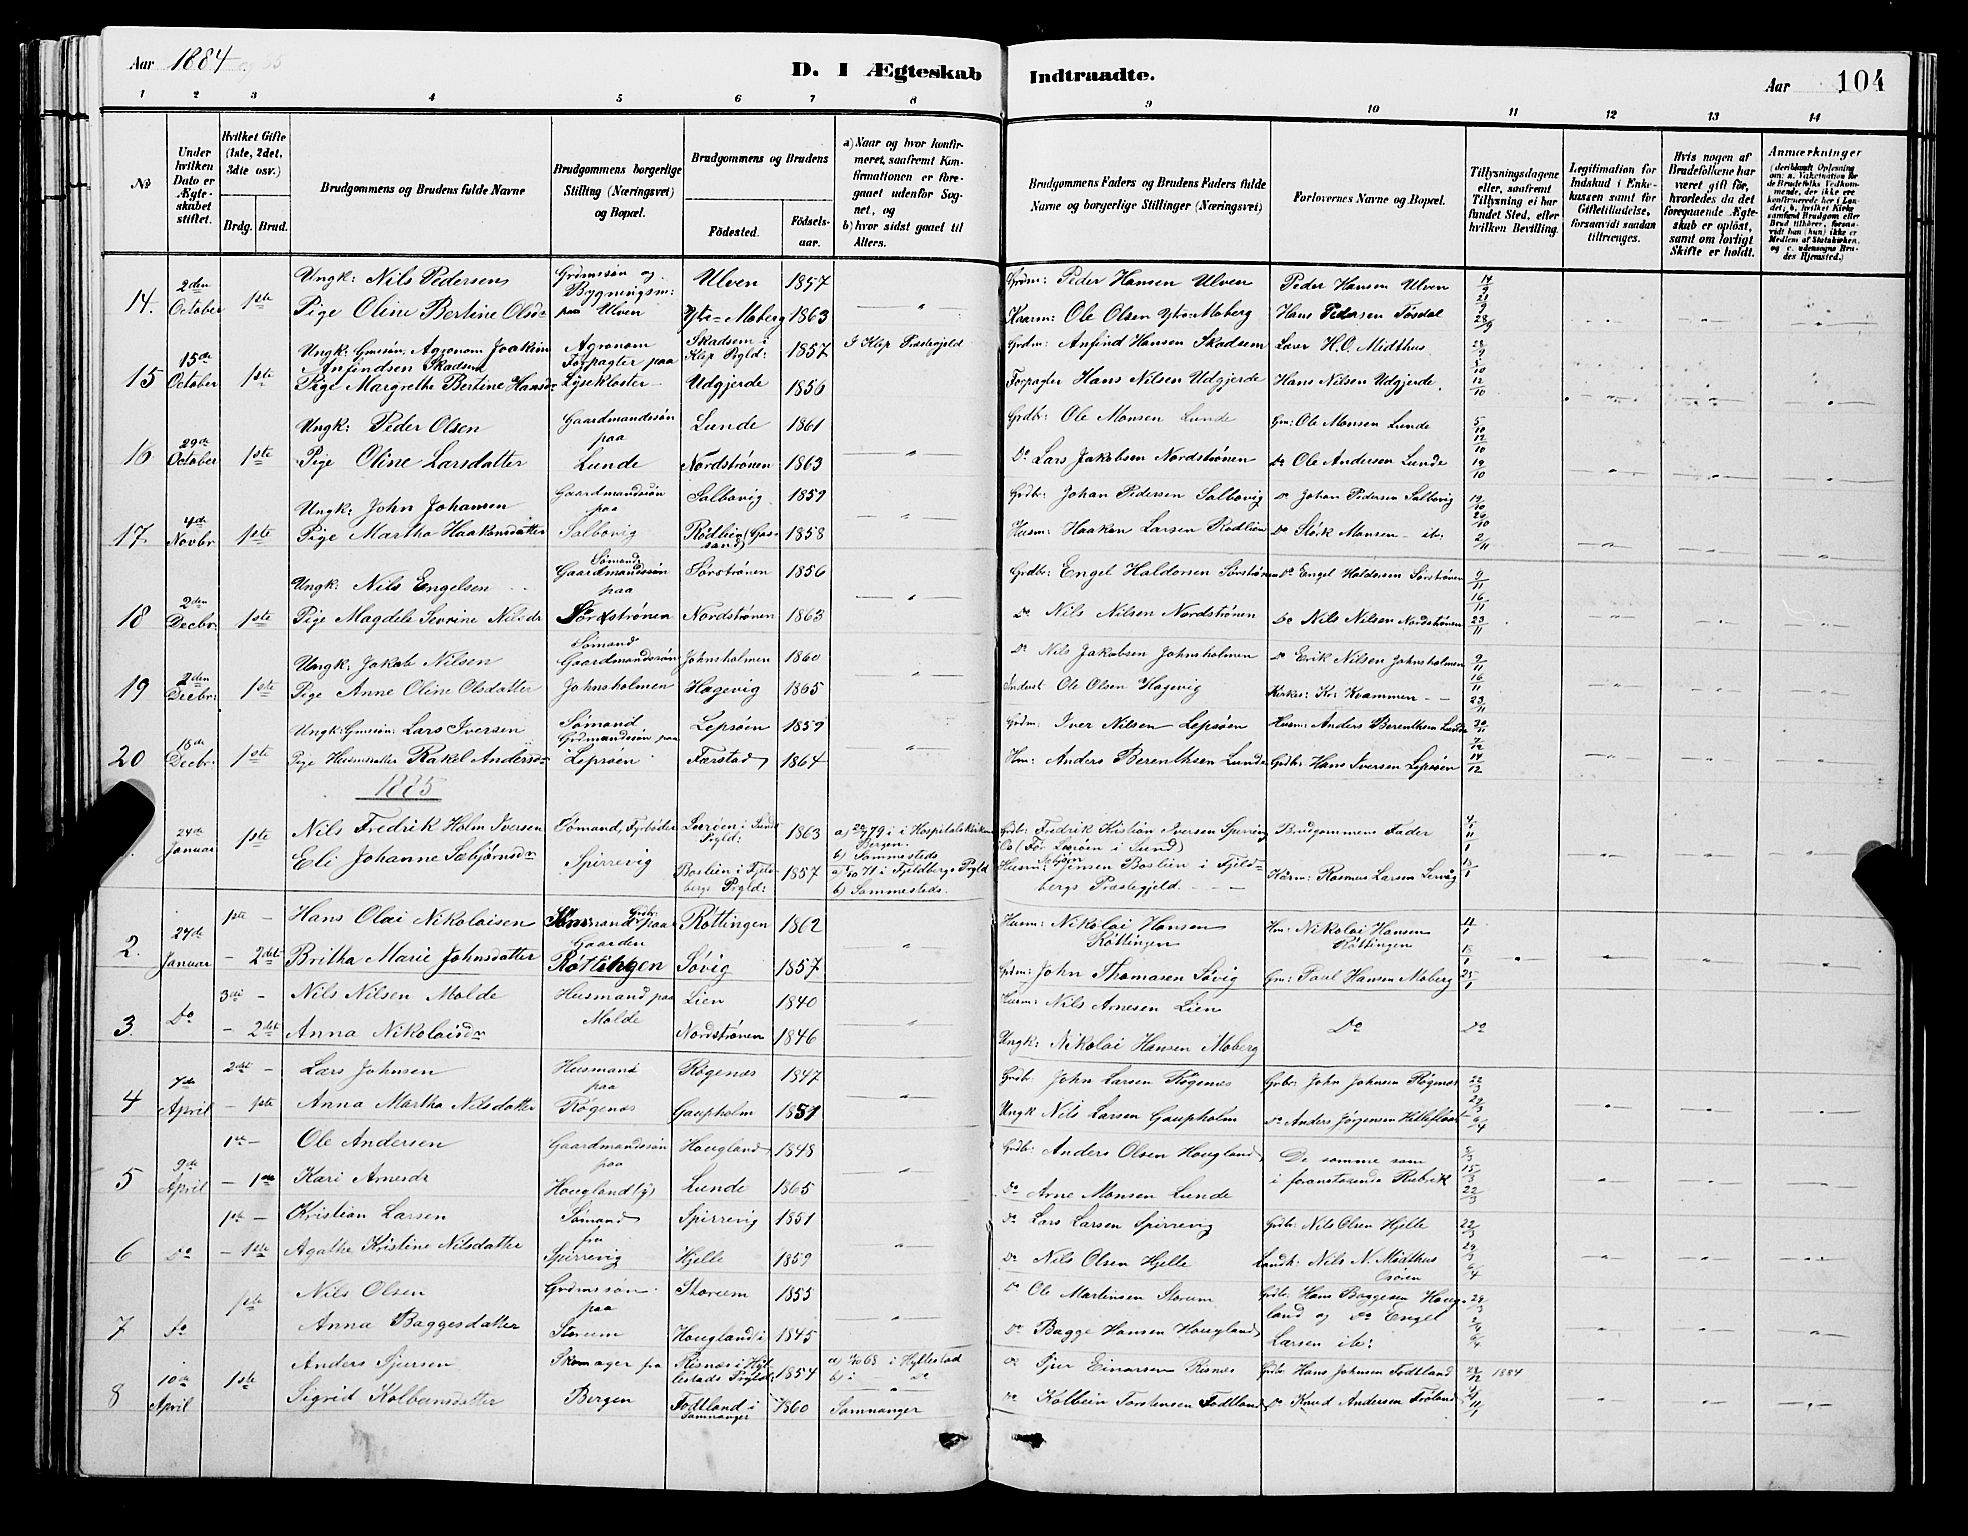 Aar 1884 og 85
D. I Ægteskab Indtraadte.
Aar 104
1 2 3 4 5 6 7 8 9 10 11 12 13 14
No
Under hvilken Dato er Ægteskabet stiftet.
Hvilket Gifte (1ste, 2det, 3dte osv.)
Brdg. Brud.
Brudgommens og Brudens fulde Navne
Brudgommens borgerlige Stilling (Næringsvei) og Bopæl.
Brudgommens og Brudens
Fødested.
Fødselsaar.
a) Naar og hvor konfirmeret, saafremt Konfirmationen er foregaaet udenfor Sognet, og
b) hvor sidst gaaet til Alters.
Brudgommens Faders og Brudens Faders fulde Navne og borgerlige Stillinger (Næringsvei)
Forlovernes Navne og Bopæl.
Tillysningsdagene eller, saafremt Tillysning ei har fundet Sted, efter hvilken Bevilling.
Legitimation for Indskud i Enkekassen samt for Giftetilladelse, forsaavidt saadan tiltrænges.
Hvis nogen af Brudefolkene har været gift før, hvorledes da det foregaaende Ægteskab er opløst, samt om lovligt Skifte er holdt.
Anmærkninger
14. 2den October 1ste
Ungk: Nils Pedersens Grdmssøn og Bygningsm: paa Ulven Ulven 1857 Grdm: Peder Hansen Ulven Peder Hansen Ulven 14/9
Pige Oline Bertine Olsdr Ytre-Moberg 1863 " Kaarm: Ole Olsen Ytre-Moberg Hans Pedersen Tøsdal 21/9 28/9
15 15de October 1ste
Ungk: Gmsøn, Agronom Joakim Anfindsen Skadsem Agronom Forpagter paa Lysekloster Skadsem i Klep Prgld: 1857 I Klep Præstegjeld Grdm: Anfind Hansen Skadsem Lærer H.O. Midthus 28/9 5/10
Pige Margrethe Bertine Hansdr Udgjerde 1856 Forpagter Hans Nilsen Udgjerde Hans Nilsen Udgjerde. 12/10
16 29de October 1ste
Ungk: Peder Olsen Gaardmandssøn paa Lunde Lunde 1861 Grdbr: Ole Monsen Lunde Gm: Ole Monsen Lunde 5/10 12/10
Pige Oline Larsdatter Nordstrønen 1863 " Do Lars Jakobsen Nordstrønen Do Ole Andersen Lunde 19/10
17. 4de Novbr 1ste
Ungk: John Johansen Gaardmandssøn paa Salbovig Salbovig 1859 Grdb: Johan Pedersen Salbovig Do Johan Pedersen Salbovig 19/10
Pige Martha Haakonsdatter Rødlien 1858 " Husm: Haakon Larsen Rødlien Do Størk Monsen - ib: 2/11
18 2den Decbr: 1ste
Ungk: Nils Engelsen Sømand Gaardmandssøn paa Sørstrønen Sørstrønen 1856 Grdbr: Engel Haldorsen Sørstrønen Do Engel Haldorsen Sørstrønen 9/11 16/11
Pige Magdele Sevrine Nilsdr Nordstrønen 1863 " Do Nils Nilsen Nordstrønen Do Nils Nilsen Nordstrønen 23/11
19 2den Decbr: 1ste
Ungk: Jakob Nilsen Sømand Gaardmandssøn Johnsholmen Johnsholmen 1860 Do Nils Jakobsen Johnsholmen Do Erik Nilsen Johnsholmen 9/11 16/11
Pige Anne Oline Olsdatter Hagevig 1865 " Inderst Ole Olsen Hagevig Kirkes: Kr: Kvammen 23/11
20 18de Decbr: 1ste
Ungk: Gmsøn: Lars Iversen Sømand Grdmandssøn paa Lepsøen Lepsøen 1859 Grdm: Iver Nilsen Lepsøen Husm: Anders Berenthsen Lunde 30/11 7/12
Pige Husmsdatter Rakel Andersdr Færstad 1864 " Hm: Anders Berenthsen Lunde Grdb: Hans Iversen Lepsøen 14/12
1885
24de Januar 1ste
Nils Fredrik Holm Iversen Sømand, Fyrbøder Spirrevig Lærøen i Sunds Prgld: 1863 a) 79 i Hospitalskirken Bergen. b) Sammesteds Grdbr: Fredrik Kristian Iversen Spirrevig (Før Lærøen i Sund) Brudgommens Fader 4/1 11/1
Eli Johanne Sæbjørnsdr Boslien i Fjeldbergs Prgld: 1857 a) 71 i Fjeldbergs Prgld b) Sammesteds. Husm: Sæbjørn Jensen Boslien i Fjeldbergs Præstegjeld Kårm: Rasmus Larsen Lervåg 18/1
2. 24de Januar
1ste - Hans Olai Nikolaisen Sømand paa Gaarden Røttingen Røttingen 1862 Husm: Nikolai Hansen Røttingen Hm: Nikolai Hansen Røttingen
- 2det Britha Marie Johnsdatter Søvig 1857 " Grdm: John Thomasen Søvig Gm: Paul Hansen Moberg 25/1
3. Do
3die - Nils Nilsen Molde Husmand paa Molde Lien 1840 Husm: Nils Arnesen Lien
- 2det Anna Nikolaisdr Nordstrønen 1846 " Ungk: Nikolai Hansen Moberg Do Do
4 7de April
2det - Lars Johnsen Husmand paa Røgenæs Røgenæs 1847 Grdbr: John Larsen Røgenæs Grbr: John Johnsen Røgenæs 22/3
- 1ste Anna Martha Nilsdatter Gaupholm 1851 " Ungk Nils Larsen Gaupholm Do Anders Jørgensen Hilleflaat 29/3 6/4
5 9de April
1ste - Ole Andersen Gaardmandssøn paa Hougland Hougland 1848 Grdbr: Anders Olsen Hougland De samme som i foranstaaende Rubrik 8/3
- 1ste Kari Arnesdr Lunde 1865 " Do Arne Monsen Lunde 15/3 22/3
6 Do
1ste - Kristian Larsen Sømand fra Spirrevig Spirrevig 1851 Do Lars Larsen Spirrevig Grdbr: Nils Olsen Hjelle 22/3
- 1ste Agathe Kristine Nilsdatter Hjelle 1859 " Do Nils Olsen Hjelle Landh: Nils N. Midthus Osøren 29/3 6/4
7 Do 1ste
Nils Olsen Grdmssøn paa Storum Storum 1855 Do Ole Martinsen Storum Grdbr: Hans Baggesen Hougland og Do Engel Larsen ib: 29/3
Anna Baggesdatter Hougland 1845 " Do Bagge Hansen Hougland 6/4
8 10de April 1ste
Anders Sjursen Skomager paa Bergen Risnæs i Hyllestads Prgld: 1854 a) 68 i Hyllestad b) i Do Do Sjur Einarsen Risnæs Grdbr Hans Johnsen Fodtland 28/12 1884
Sigrid Kolbeinsdatter Fodtland i Samnanger 1860 Samnanger Do Kolbein Torstensen Fodtland Do Knud Andersen Frøland 4/1 11/1